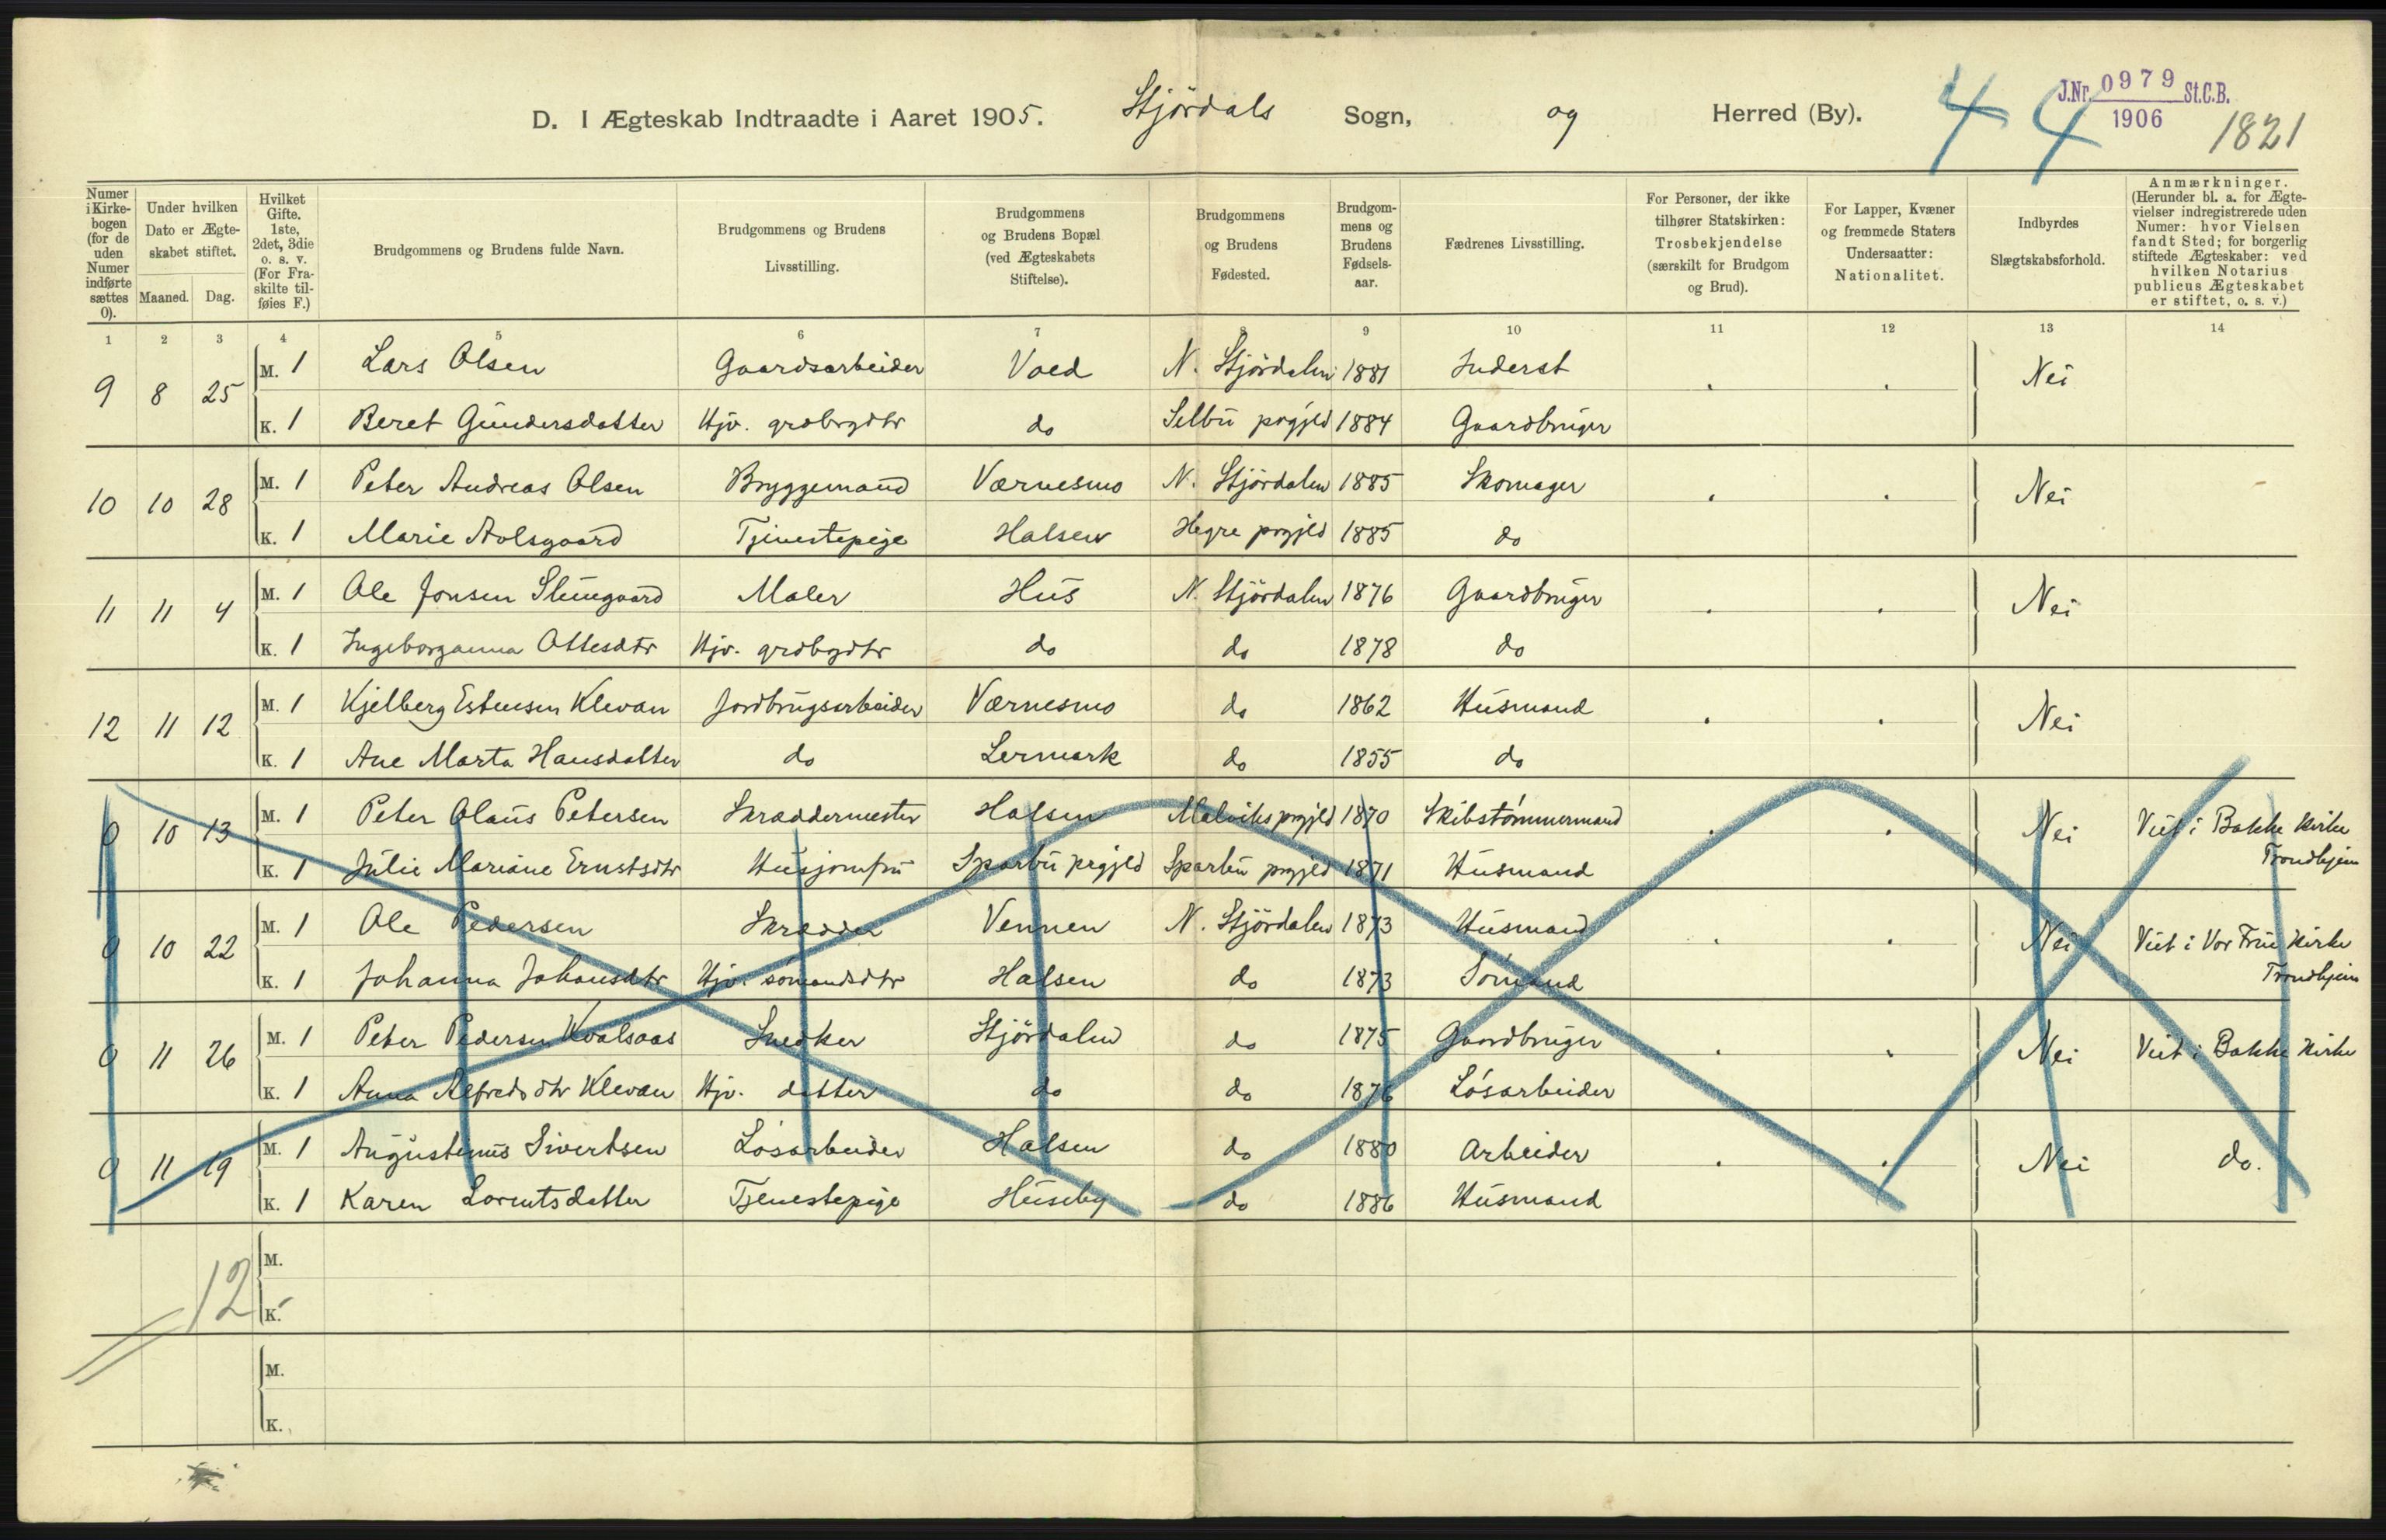 D. I Ægteskab Indtraadte i Aaret 1905. Stjördals Sogn, og Herred (By).
44
J.Nr. 0979 St.C.B.
1906
1821
Numer i Kirkebogen (for de uden Numer indførte sættes 0).
Under hvilken Dato er Ægteskabet stiftet.
Maaned. Dag.
Hvilket Gifte. 1ste, 2det, 3die o. s. v. (For Fraskilte tilføies F.)
Brudgommens og Brudens fulde Navn.
Brudgommens og Brudens Livsstilling.
Brudgommens og Brudens Bopæl (ved Ægteskabets Stiftelse).
Brudgommens og Brudens Fødested.
Brudgommens og Brudens Fødselsaar.
Fædrenes Livsstilling.
For Personer, der ikke tilhører Statskirken: Trosbekjendelse (særskilt for Brudgom og Brud).
For Lapper, Kvæner og fremmede Staters Undersaatter: Nationalitet.
Indbyrdes Slægtskabsforhold.
Anmærkninger. (Herunder bl. a. for Ægtevielser indregistrerede uden Numer: hvor Vielsen fandt Sted; for borgerlig stiftede Ægteskaber: ved hvilken Notarius publicus Ægteskabet er stiftet, o. s. v.)
1 2 3 4 5 6 7 8 9 10 11 12 13 14
9 8 25 M. 1 Lars Olsen Gaardsarbeider Vold N. Stjördalen 1881 Inderst Nei
K. 1 Beret Gundersdatter Hjv. grdbrgdtr do Selbu prgjld 1884 Gaardbruger
10 10 28 M. 1 Peter Andreas Olsen Bryggemand Værnesmo N. Stjördalen 1885 Skomager Nei
K. 1 Marie Avlsgaard Tjenestepige Halsen Hegre prgjld 1885 do
11 11 4 M. 1 Ole Jonsen Maler Hus N. Stjördalen 1876 Gaardbruger Nei
K. 1 Ingeborganna Ottesdtr Hjv. grdbrgdtr do do 1878 do
12 11 12 M. 1 Kjelberg Estensen Klevan Jordbrugsarbeider Værnesmo do 1862 Husmand Nei
K. 1 Ane Marta Hansdatter do Lermark do 1855 do
0 10 13 M. 1 Peter Olaus Petersen Skræddermester Halsen Malviks prgjld 1870 Skibstømmermand Nei Viet i Bakke Kirke
K. 1 Julie Mariane Ernstsdtr Husjomfru Sparbu prgjld Sparbu prgjld 1871 Husmand Trondhjem
0 10 22 M. 1 Ole Pedersen Skrædder Vennen N. Stjördalen 1873 Husmand Nei Viet i Vor Frue Kirke
K. 1 Johanna Johansdtr Hjv. sömandsdtr Halsen do 1873 Sömand Trondhjem
0 11 26 M. 1 Peter Pedersen Kvalsaas Snedker Stjördalen do 1875 Gaardbruger Nei Viet i Bakke Kirke
K. 1 Anna Alfredsdtr Klevan Hjv. datter do do 1876 Lösarbeider
0 11 19 M. 1 Augustinus Sivertsen Lösarbeider Halsen do 1880 Arbeider Nei do.
K. 1 Karen Lorentsdatter Tjenestepige Huseby do 1886 Husmand
12 M.
K.
M.
K.